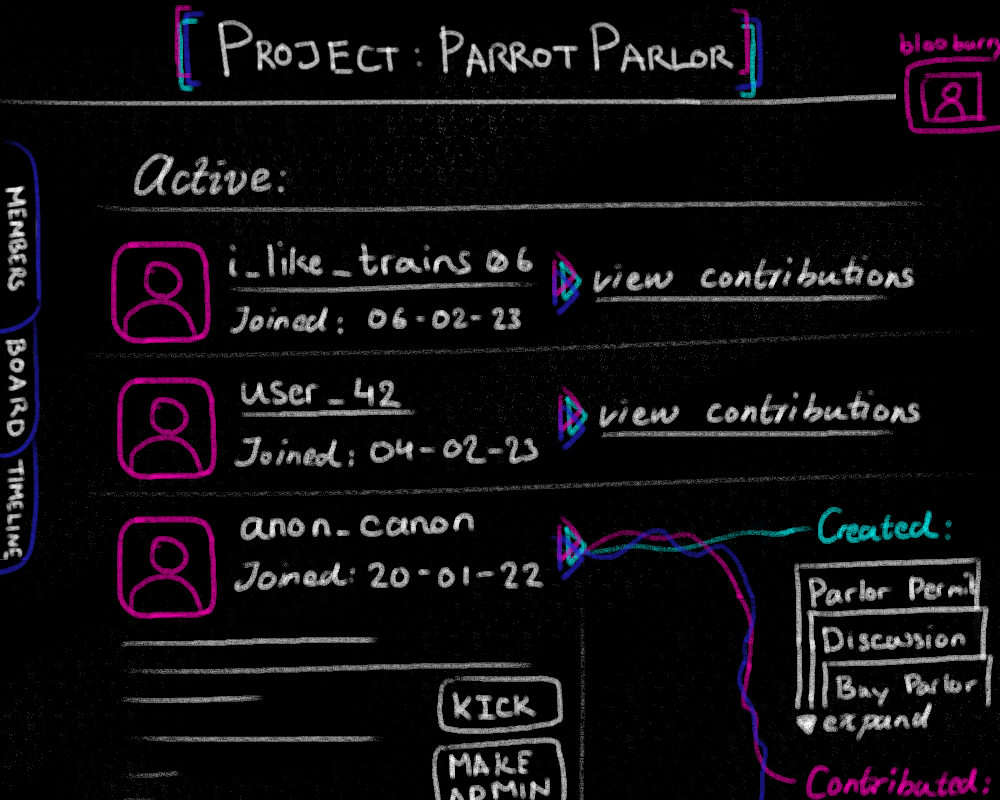 [PROJECT: PARROT PARLOR]
Active:
MEMBERS
BOARD
TIMELINE
i_like_trains06
Joined: 06-02-23
view contributions
user_42
Joined: 04-02-23
view contributions
anon_canon
Joined: 20-01-22
KICK
MAKE
ADMIN
Created:
Parlor Permit
Discussion
Bay Parlor
expand
Contributed: